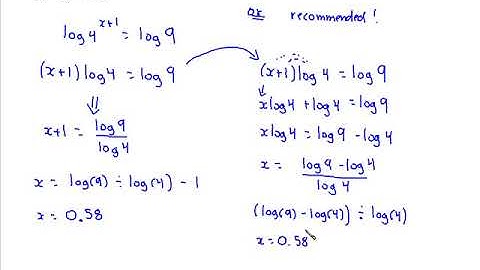 log 4^(x+1) = log 9
(x+1) log 4 = log 9
⇓
x+1 = log 9 / log 4
x = log(9) ÷ log(4) - 1
x = 0.58
OR recommended!
(x+1) log 4 = log 9
x log 4 + log 4 = log 9
x log 4 = log 9 - log 4
x = (log 9 - log 4) / log 4
(log(9) - log(4)) ÷ log(4)
x = 0.58